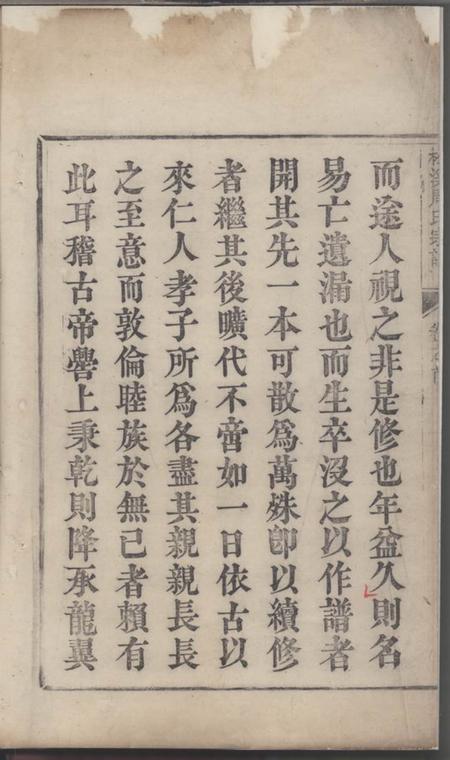 而途人視之非是修也年益久則名
易亡遺漏也而生卒沒之以作譜者
開其先一本可散爲萬殊卽以續修
者繼其後曠代不啻如一日依古以
來仁人孝子所爲各盡其親親長長
之至意而敦倫睦族於無已者賴有
此耳稽古帝嚳上秉乾則降承龍翼